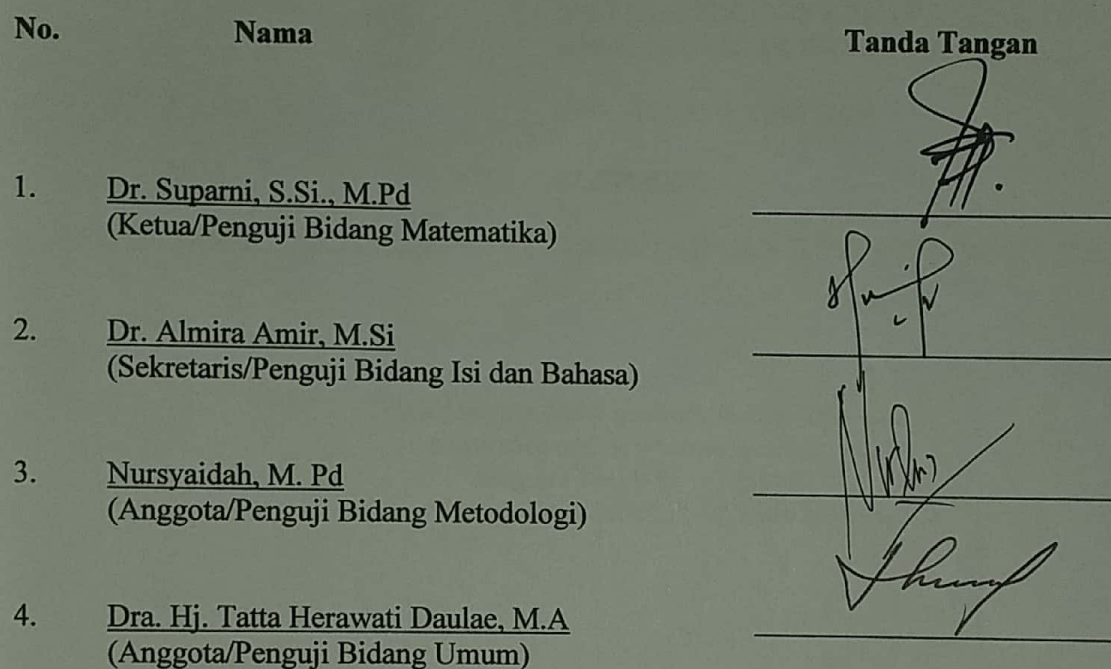 No. Nama Tanda Tangan
1. Dr. Suparni, S.Si., M.Pd
(Ketua/Penguji Bidang Matematika)
2. Dr. Almira Amir, M.Si
(Sekretaris/Penguji Bidang Isi dan Bahasa)
3. Nursyaidah, M. Pd
(Anggota/Penguji Bidang Metodologi)
4. Dra. Hj. Tatta Herawati Daulae, M.A
(Anggota/Penguji Bidang Umum)